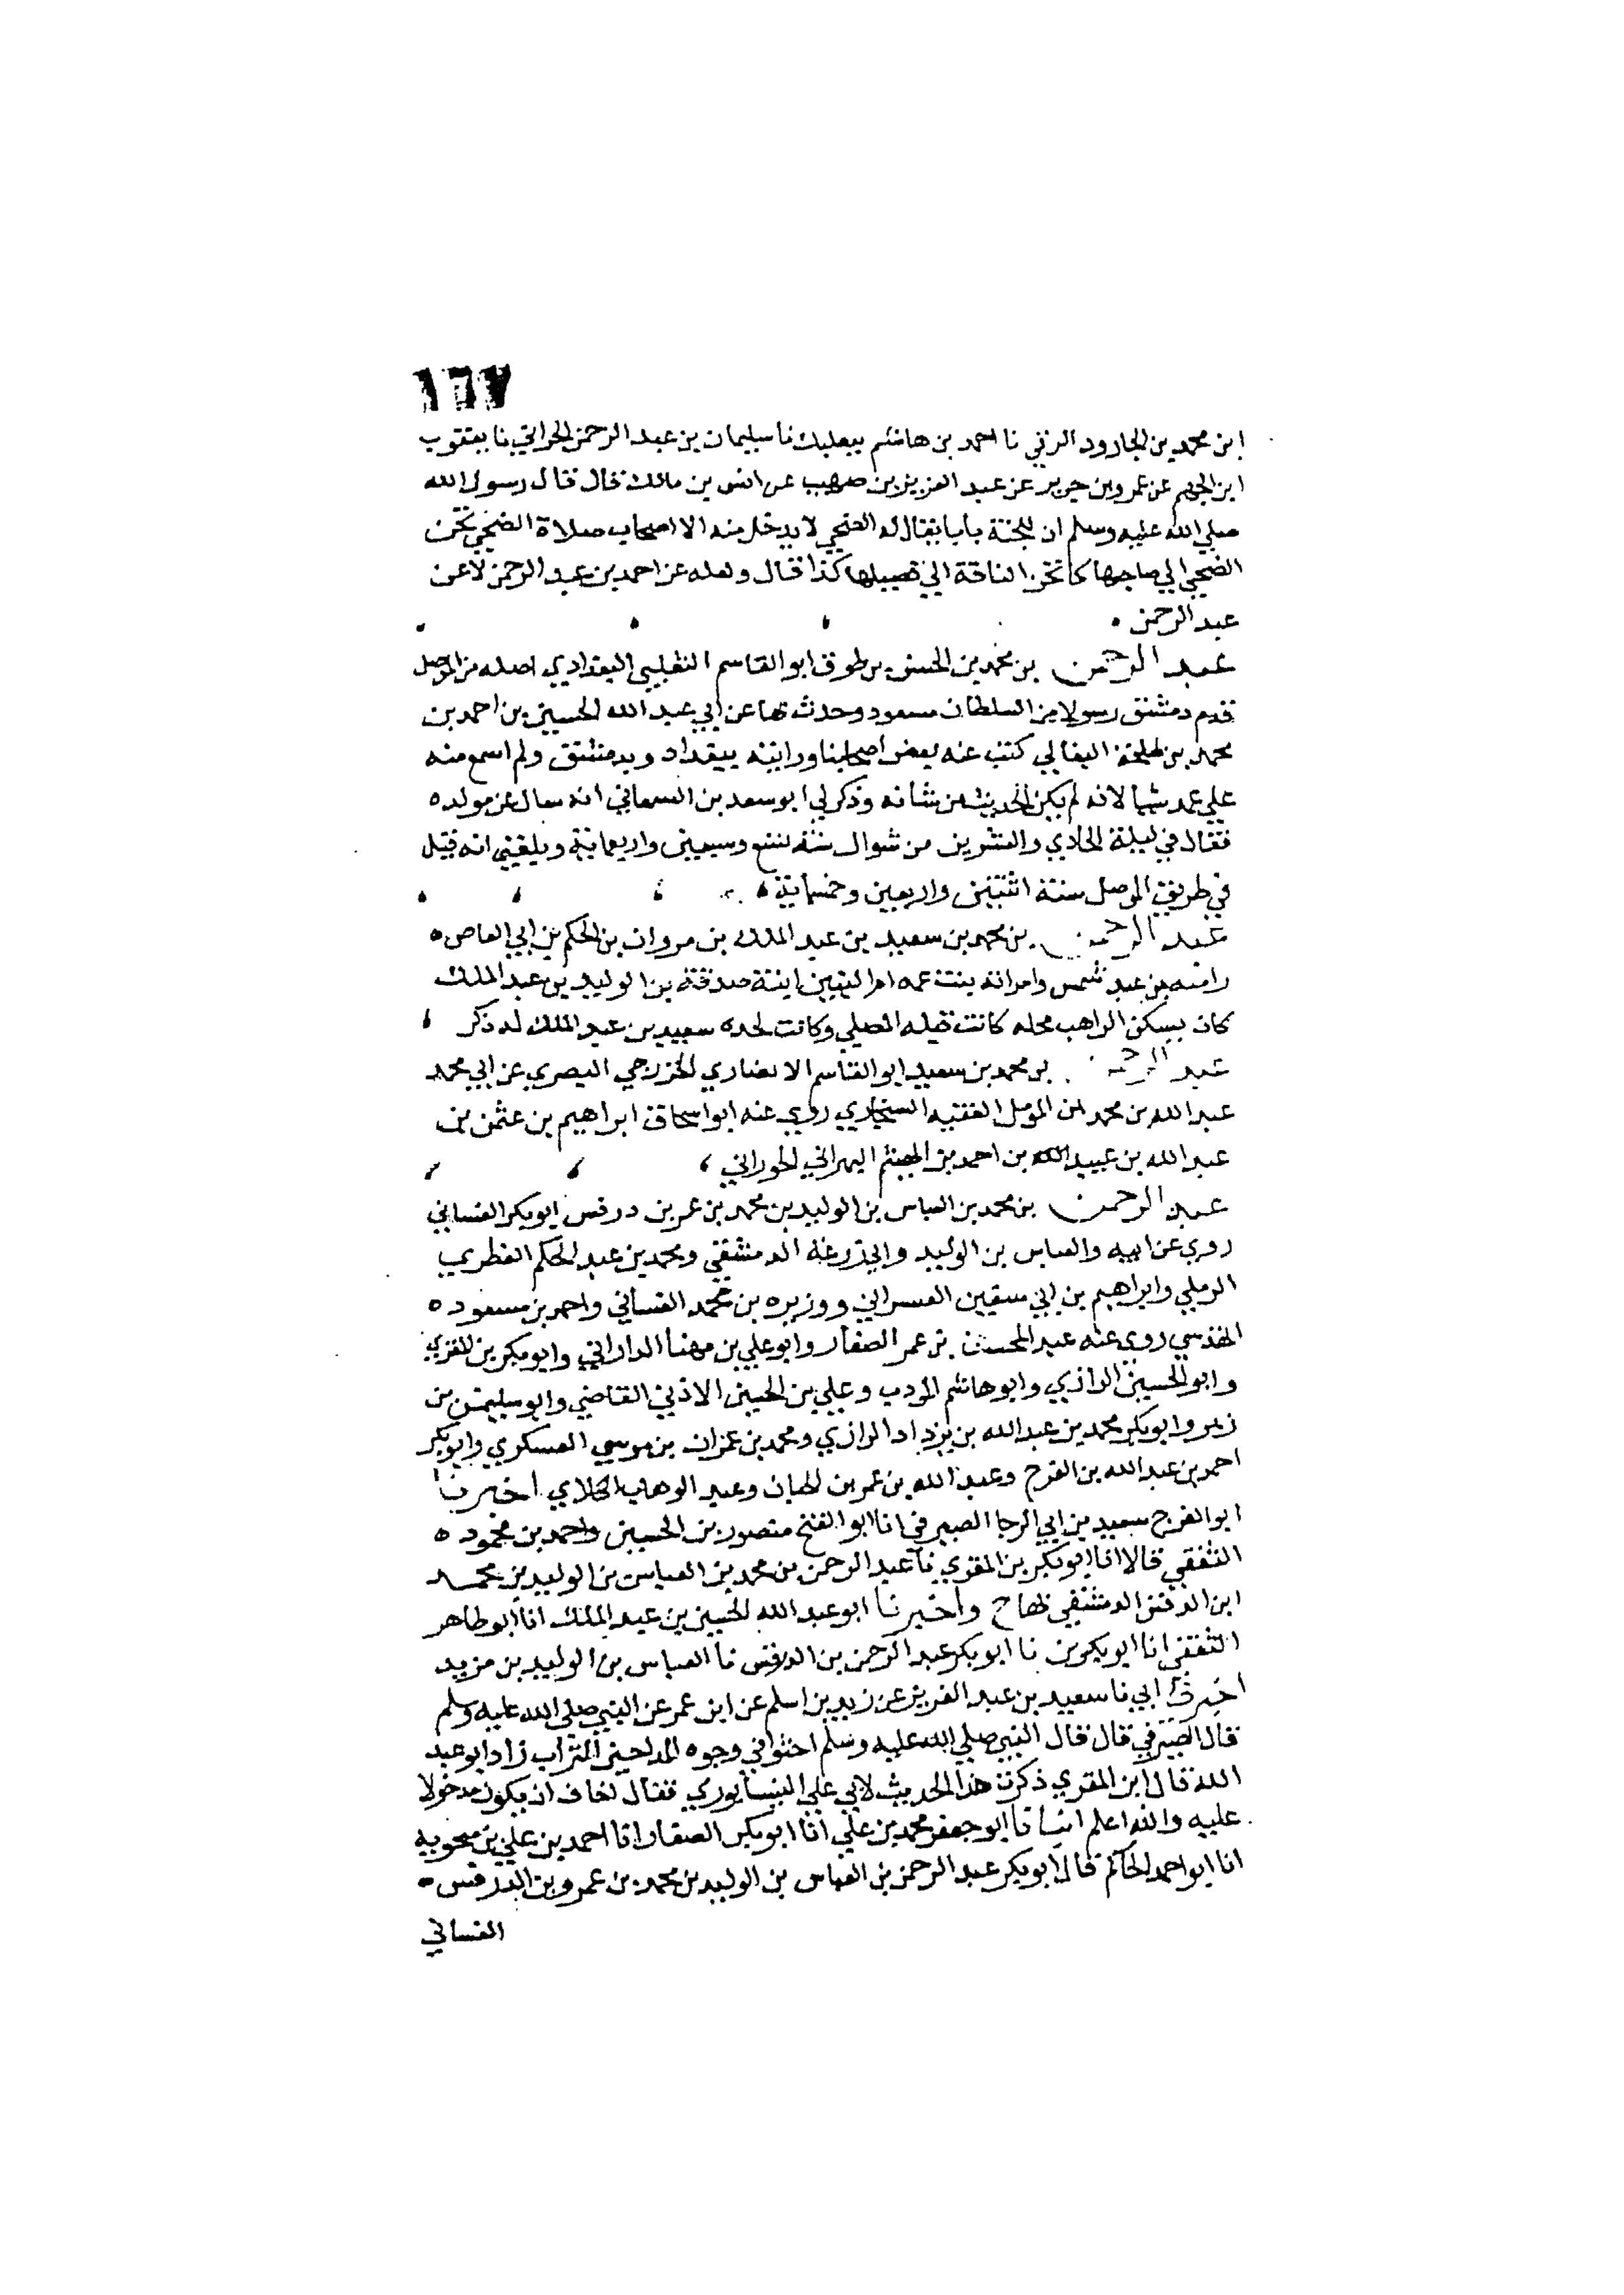 ١٦٧
ابن محمد بن الجارود الرقي نا احمد بن هاشم ببعلبك نا سليمان بن عبد الرحمن الحراني نا يعقوب
ابن الجهم عن عمرو بن جرير عن عبد العزيز بن صهيب عن انس بن مالك قال قال رسول الله
صلي الله عليه وسلم ان للجنة بابا يقال له الضحي لا يدخل منه الا اصحاب صلاة الضحي تحن
الضحي الي صاحبها كما تحن الناقة الي فصيلها كذا قال ولعله عن احمد بن عبد الرحمن لا عن
عبد الرحمن
عبد الرحمن بن محمد بن الحسن بن طوق ابو القاسم الثعلبي البغدادي اصله من الموصل
قدم دمشق رسولا من السلطان مسعود وحدث بها عن ابي عبد الله الحسين بن احمد بن
محمد بن طلحة النعالي كتب عنه بعض اصحابنا ورايته ببغداد وبدمشق ولم اسمع منه
علي عمد شيا لانه لم يكن الحديث من شانه وذكر لي ابو سعد بن السمعاني انه سال عن مولده
فقال في ليلة الحادي والعشرين من شوال سنة تسع وسبعين واربعماية وبلغني انه قتل
في طريق الموصل سنة اثنتين واربعين وخمسماية
عبد الرحمن بن محمد بن سعيد بن عبد الملك بن مروان بن الحكم بن ابي العاص
ابن اميه بن عبد شمس وامراته بنت عمه ام البنين ابنة صدقة بن الوليد بن عبد الملك
كان يسكن الراهب محله كانت قبله المصلي وكانت لجده سعيد بن عبد الملك له ذكر
عبد الرحمن بن محمد بن سعيد ابو القاسم الانصاري الخزرجي البصري عن ابي محمد
عبد الله بن محمد بن المومل الفقيه السنجاري روي عنه ابو اسحاق ابراهيم بن عثمن بن
عبد الله بن عبيد الله بن احمد بن الهيثم البهراني الحوراني
عبد الرحمن بن محمد بن العباس بن الوليد بن محمد بن عمر بن درفس ابو بكر الغساني
روي عن ابيه والعباس بن الوليد وابي زرعة الدمشقي ومحمد بن عبد الحكم القطري
الرملي وابراهيم بن ابي سفين القيسراني ووزيره بن محمد الغساني واحمد بن مسعود
المقدسي روي عنه عبد المحسن بن عمر الصفار وابو علي بن مهنا الداراني وابو بكر بن المقري
وابو الحسين الرازي وابو هاشم المودب وعلي بن الحسين الاذني القاضي وابو سليمن بن
زبر وابو بكر محمد بن عبد الله بن يزداد الرازي ومحمد بن عمران بن موسي العسكري وابو بكر
احمد بن عبد الله بن الفرج وعبد الله بن عمر بن وعبد الوهاب الكلابي اخبرنا
ابو الفرج سعيد بن ابي الرجا الصيرفي انا ابو الفتح منصور بن الحسين واحمد بن محمود
الثقفي قالا انا ابو بكر بن المقري نا عبد الرحمن بن محمد بن العباس بن الوليد بن محمد
ابن الدرفس الدمشقي بها ح واخبرنا ابو عبد الله الحسين بن عبد الملك انا ابو طاهر
الثقفي انا ابو بكر بن نا ابو بكر عبد الرحمن بن الدرفس نا العباس بن الوليد بن مزيد
اخبرني ابي نا سعيد بن عبد العزيز عن زيد بن اسلم عن ابن عمر عن النبي صلي الله عليه وسلم
قال الصيرفي قال قال النبي صلي الله عليه وسلم احثوا في وجوه المداحين التراب زاد ابو عبد
الله قال ابن المقري ذكرت هذا الحديث لابي علي النيسابوري فقال اخاف ان يكون مدخولا
عليه والله اعلم انبانا ابو جعفر محمد بن علي انا ابو بكر الصفار انا احمد بن علي بن منجويه
انا ابو احمد الحاكم قال ابو بكر عبد الرحمن بن العباس بن الوليد بن محمد بن عمرو بن الدرفس
الغساني